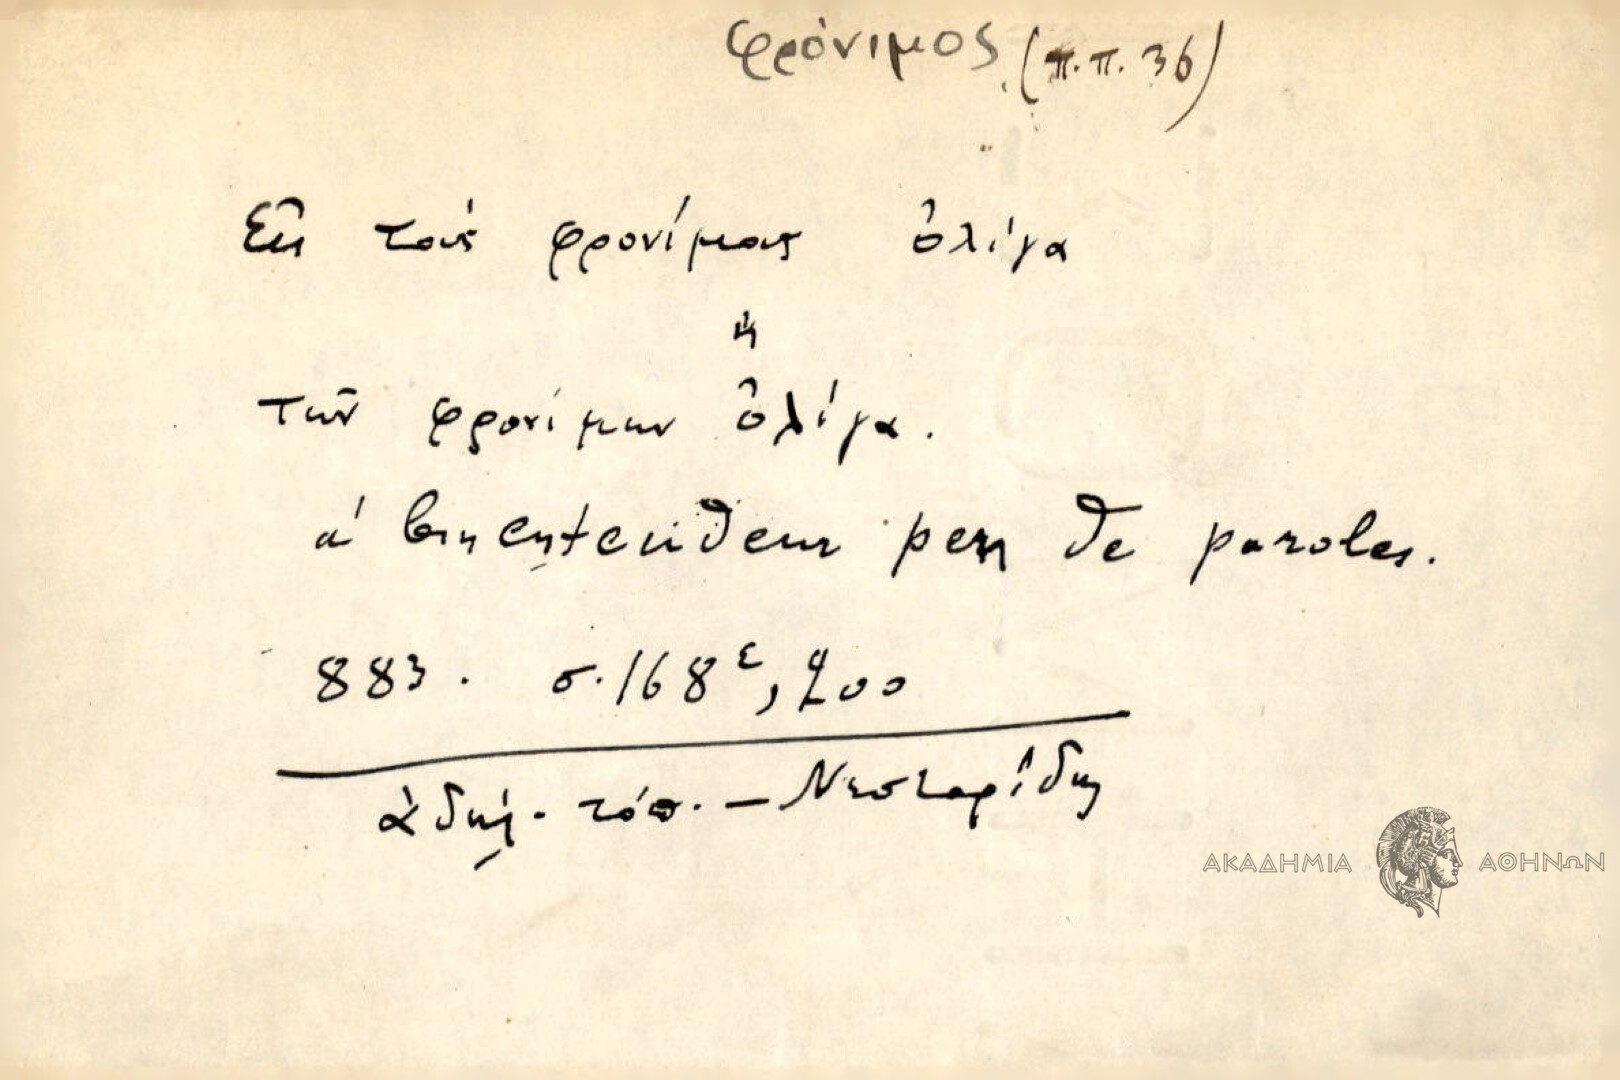 φρόνιμος (π.π. 36)
Εἰς τοὺς φρονίμους ὀλίγα
ἢ
τῶν φρονίμων ὀλίγα.
á bon entendeur peu de paroles.
883. σ. 168ε, 200
ἀδήλ. τόπ. – Νεσταρίδης
ΑΚΑΔΗΜΙΑ ΑΘΗΝΩΝ